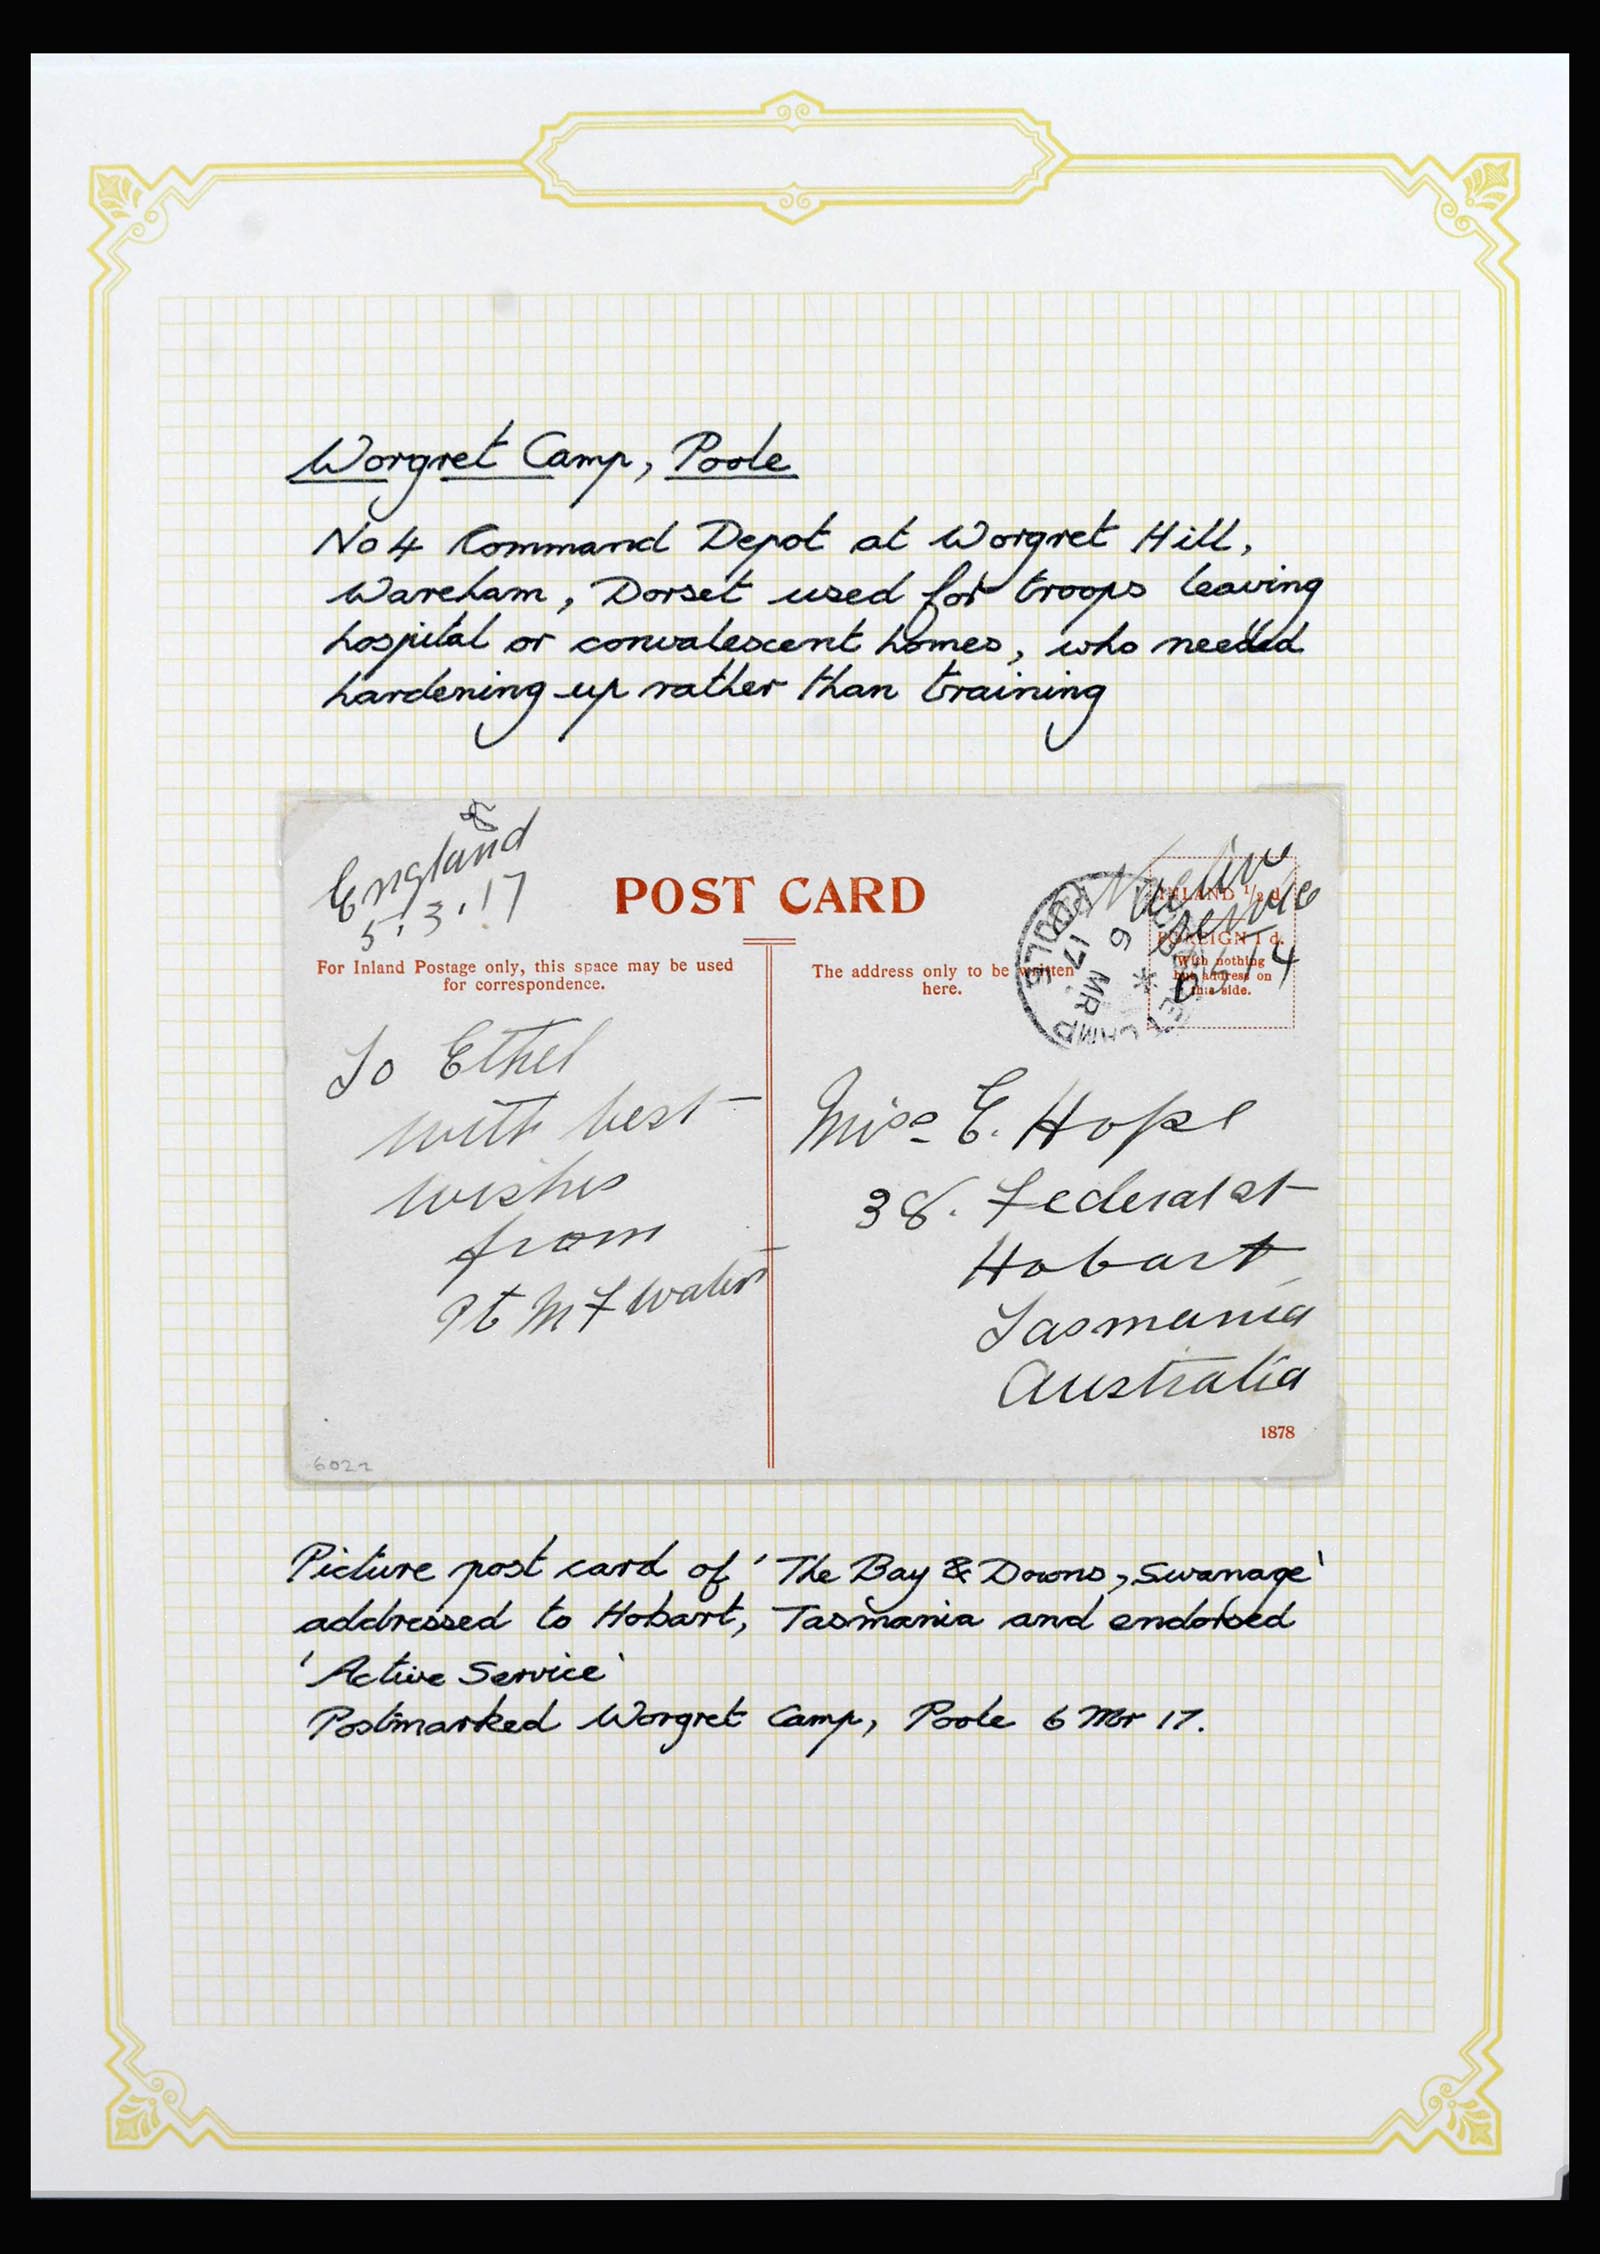 Worgret Camp, Poole
No 4 Command Depot at Worgret Hill,
Wareham, Dorset used for troops leaving
hospital or convalescent homes, who needed
hardening up rather than training
England
5.3.17
POST CARD
For Inland Postage only, this space may be used
for correspondence.
The address only to be written
here.
Active
Service
INLAND 1/2 d.
FOREIGN 1 d.
With nothing
but address on
this side.
POOLE
6 MR
17
To Ethel
with best
wishes
from
Pt M F
Miss E. Hope
38. Federal st
Hobart
Tasmania
Australia
1878
6022
Picture post card of 'The Bay & Downs, Swanage'
addressed to Hobart, Tasmania and endorsed
'Active Service'
Postmarked Worgret Camp, Poole 6 Mr 17.